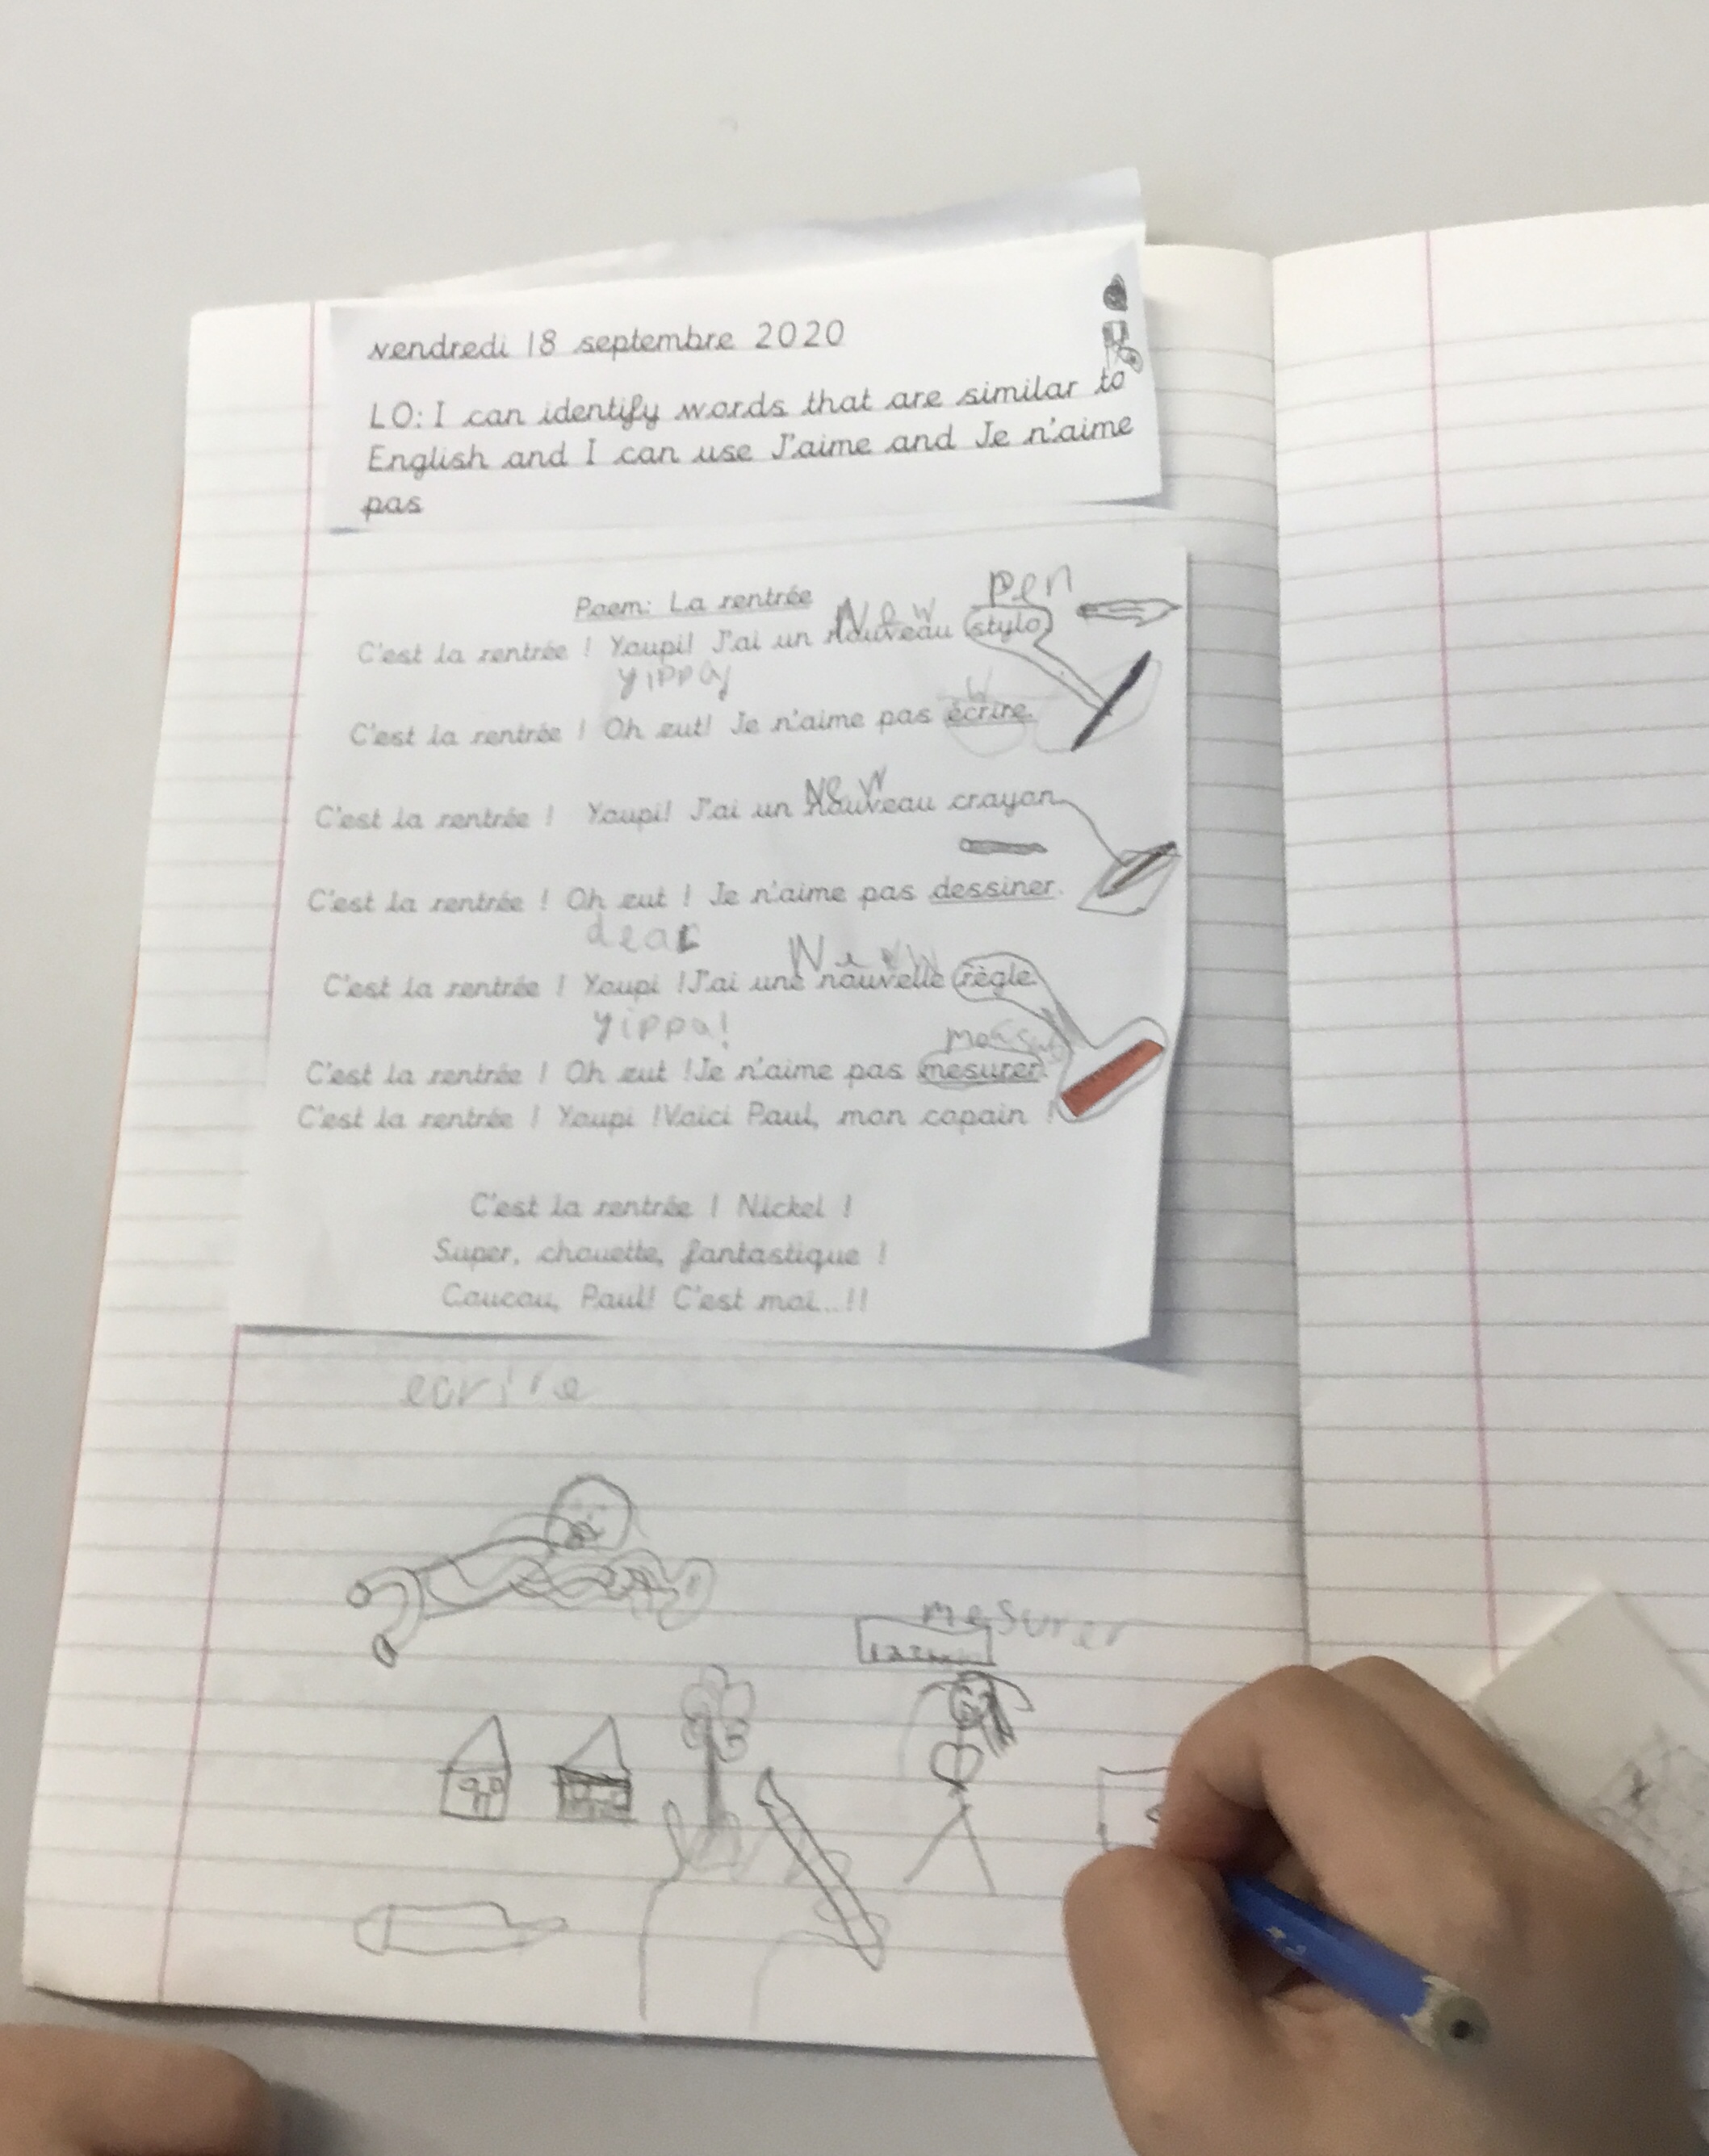 vendredi 18 septembre 2020
LO: I can identify words that are similar to
English and I can use J'aime and Je n'aime
pas
Poem: La rentrée
pen
New
C'est la rentrée ! Youpi! J'ai un nouveau stylo
yippay
w
C'est la rentrée ! Oh zut! Je n'aime pas écrire.
New
C'est la rentrée ! Youpi! J'ai un nouveau crayon
C'est la rentrée ! Oh zut ! Je n'aime pas dessiner.
dear
New
C'est la rentrée ! Youpi !J'ai une nouvelle règle.
yippa!
C'est la rentrée ! Oh zut !Je n'aime pas mesurer.
C'est la rentrée ! Youpi !Voici Paul, mon copain !
C'est la rentrée ! Nickel !
Super, chouette, fantastique !
Coucou, Paul! C'est moi...!!
ecrire
mesurer